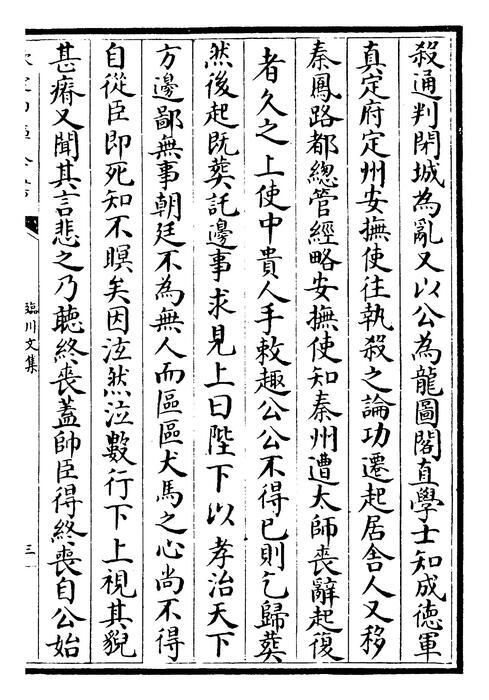 殺通判閉城為亂又以公為龍圖閣直學士知成徳軍
真定府定州安撫使往執殺之論功遷起居舍人又移
秦鳳路都緫管經略安撫使知秦州遭太師喪辭起復
者久之上使中貴人手敕趣公公不得已則乞歸葬
然後起既葬託邊事求見上曰陛下以孝治天下
方邊鄙無事朝廷不為無人而區區犬馬之心尚不得
自從臣即死知不瞑矣因泣然泣數行下上視其貎
甚瘠又聞其言悲之乃聽終喪葢帥臣得終喪自公始
臨川文集
三